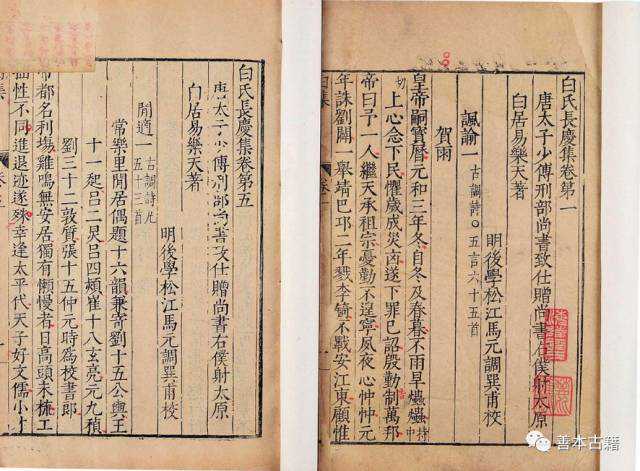 白氏長慶集卷第一
唐太子少傅刑部尚書致仕贈尚書右僕射太原
白居易樂天著
明後學松江馬元調巽甫校
諷諭一 古調詩〇五言六十五首
賀雨
皇帝嗣寶曆元和三年冬自冬及春暮不雨旱爞爞持中
切上心念下民懼歲成災凶遂下罪已詔殷勤制萬邦
帝曰予一人繼天承祖宗憂勤不遑寧夙夜心忡忡元
年誅劉闢一舉靖巴邛二年戮李錡不戰安江東顧惟
白氏長慶集卷第五
唐太子少傅刑部尚書致仕贈尚書右僕射太原
白居易樂天著
明後學松江馬元調巽甫校
閒適一 古調詩凡五十三首
常樂里閒居偶題十六韻兼寄劉十五公輿王
十一起呂二炅呂四熲崔十八玄亮元九稹
劉三十二敦質張十五仲元時爲校書郎
帝都名利場雞鳴無安居獨有懶慢者日高頭未梳工
拙性不同進退迹遂殊幸逢太平代天子好文儒小才
善本古籍